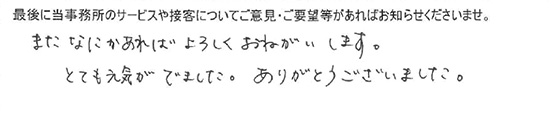 最後に当事務所のサービスや接客についてご意見・ご要望等があればお知らせくださいませ。
またなにかあればよろしくおねがいします。
とても元気がでました。ありがとうございました。